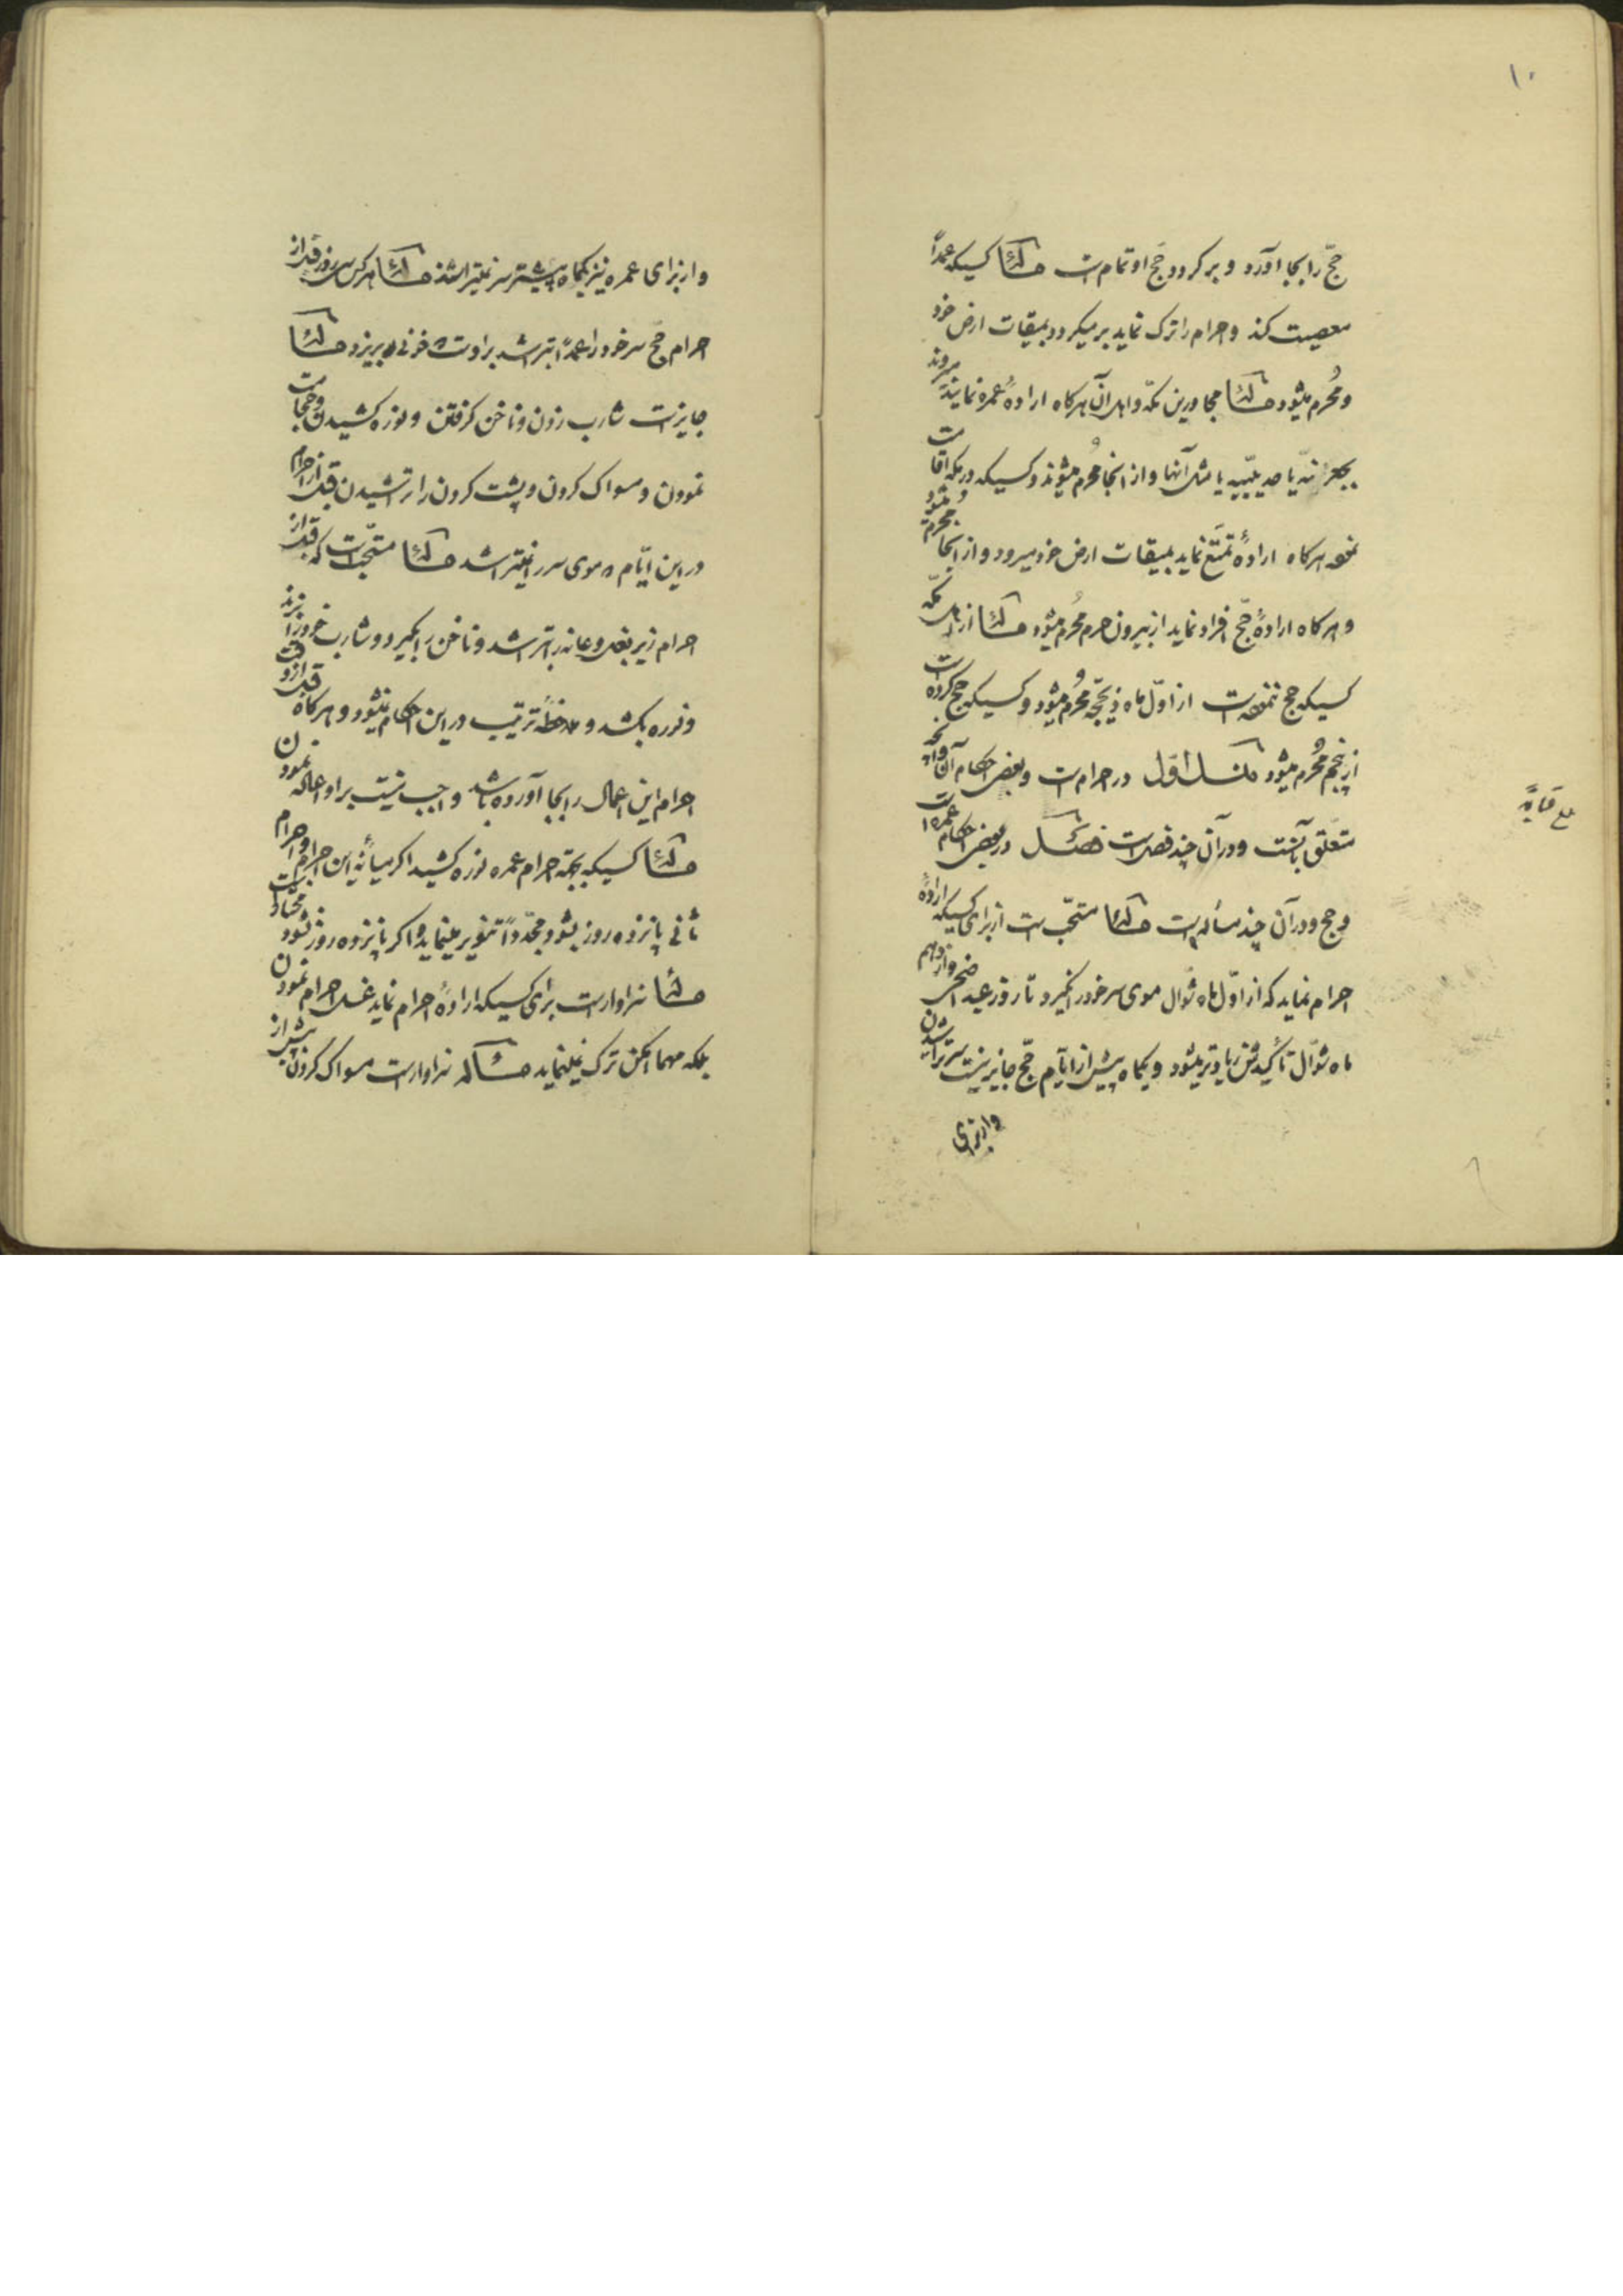 ۱۰
حجّ را بجا آورد و برگردد حجّ او تمام است مسألة کسیکه عمداً
معصیت کند و احرام را ترک نماید برمیگردد بمیقات ارض خود
و مُحرم میشود مسألة مجاورین مکّه و اهل آن هرگاه ارادهٔ عمره نمایند میروند
بجعرانه یا حدیبیّه یا مثل آنها و از انجا مُحرم میشوند و کسیکه در مکه اقامت
نموده هرگاه ارادهٔ تمتّع نماید بمیقات ارض خود میرود و از انجا مُحرم میشود
و هرگاه ارادهٔ حجّ افراد نماید از بیرون حرم مُحرم میشود مسألة از اهل مکّه
کسیکه حج ننموده است از اوّل ماه ذیحجّه مُحرم میشود و کسیکه حج کرده است
از پنجم مُحرم میشود اوّل در احرام است و بعض احکام آن و آنچه
متعلّق بآنست و در آن چند فصل است فصل در بعض احکام عمره است
و حج و در آن چند مسأله است مسألة مستحّب است از برای کسیکه ارادهٔ
احرام نماید که از اوّل ماه شوّال موی سر خود را نگیرد تا روز عید اضحی و از دهم
ماه شوّال تأکیدش زیادتر میشود و یکماه پیش از ایّام حجّ جایز نیست سر تراشیدن
و از برای
بلغ قبالًة
و از برای عمره نیز یکماه پیشتر سر نمیتراشند مسألة هر کس سه روز قبل از
احرام حجّ سر خود را عمداً بتراشد بر اوست که خونی بریزد مسألة
جایز است شارب زدن و ناخن گرفتن و نوره کشیدن و حجامت
نمودن و مسواک کردن و پشت گردن را تراشیدن قبل از احرام
در این ایّام که موی سر را نمیتراشد مسألة مستحّب است که قبل از
احرام زیر بغل و عانه را بتراشد و ناخن را بگیرد و شارب خود را بزند
و نوره بکشد و ملاحظهٔ ترتیب در این احکام نمیشود و هرگاه قبل از وقت
احرام این اعمال را بجا آورده باشد واجب نیست بر او اعاده نمودن
مسألة کسیکه بجهة احرام عمره نوره کشید اگر میانهٔ این احرام و احرام
ثانی پانزده روز بشود مجدّداً تنویر مینماید و اگر پانزده روز نشود محتاج نیست
مسألة سزاوار است برای کسیکه ارادهٔ احرام نماید غسل احرام نمودن
بلکه مهما امکن ترک نمینماید مسأله سزاوار است مسواک کردن پیش از